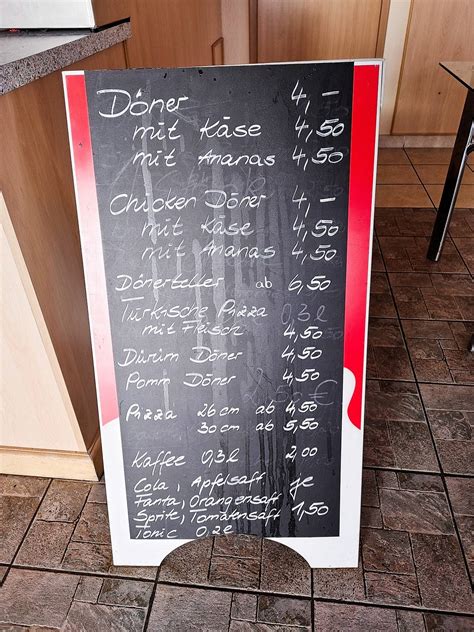 Döner 4,-
mit Käse 4,50
mit Ananas 4,50
Chicken Döner 4,-
mit Käse 4,50
mit Ananas 4,50
Dönerteller ab 6,50
Türkische Pizza 0,3l
mit Fleisch 4,50
Dürüm Döner 4,50
Pomm Döner 4,50
Pizza 26cm ab 4,50
30cm ab 5,50
Kaffee 0,3l 2,00
Cola, Apfelsaft je
Fanta, Orangensaft
Sprite, Tomatensaft 1,50
Tonic 0,2l